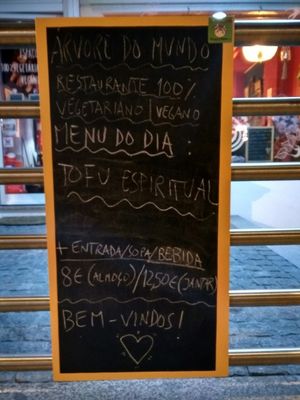 ÁRVORE DO MUNDO
RESTAURANTE 100%
VEGETARIANO | VEGANO
MENU DO DIA :
TOFU ESPIRITUAL
+ ENTRADA/SOPA/BEBIDA
8€ (ALMOÇO) / 12,50€ (JANTAR)
BEM-VINDOS!